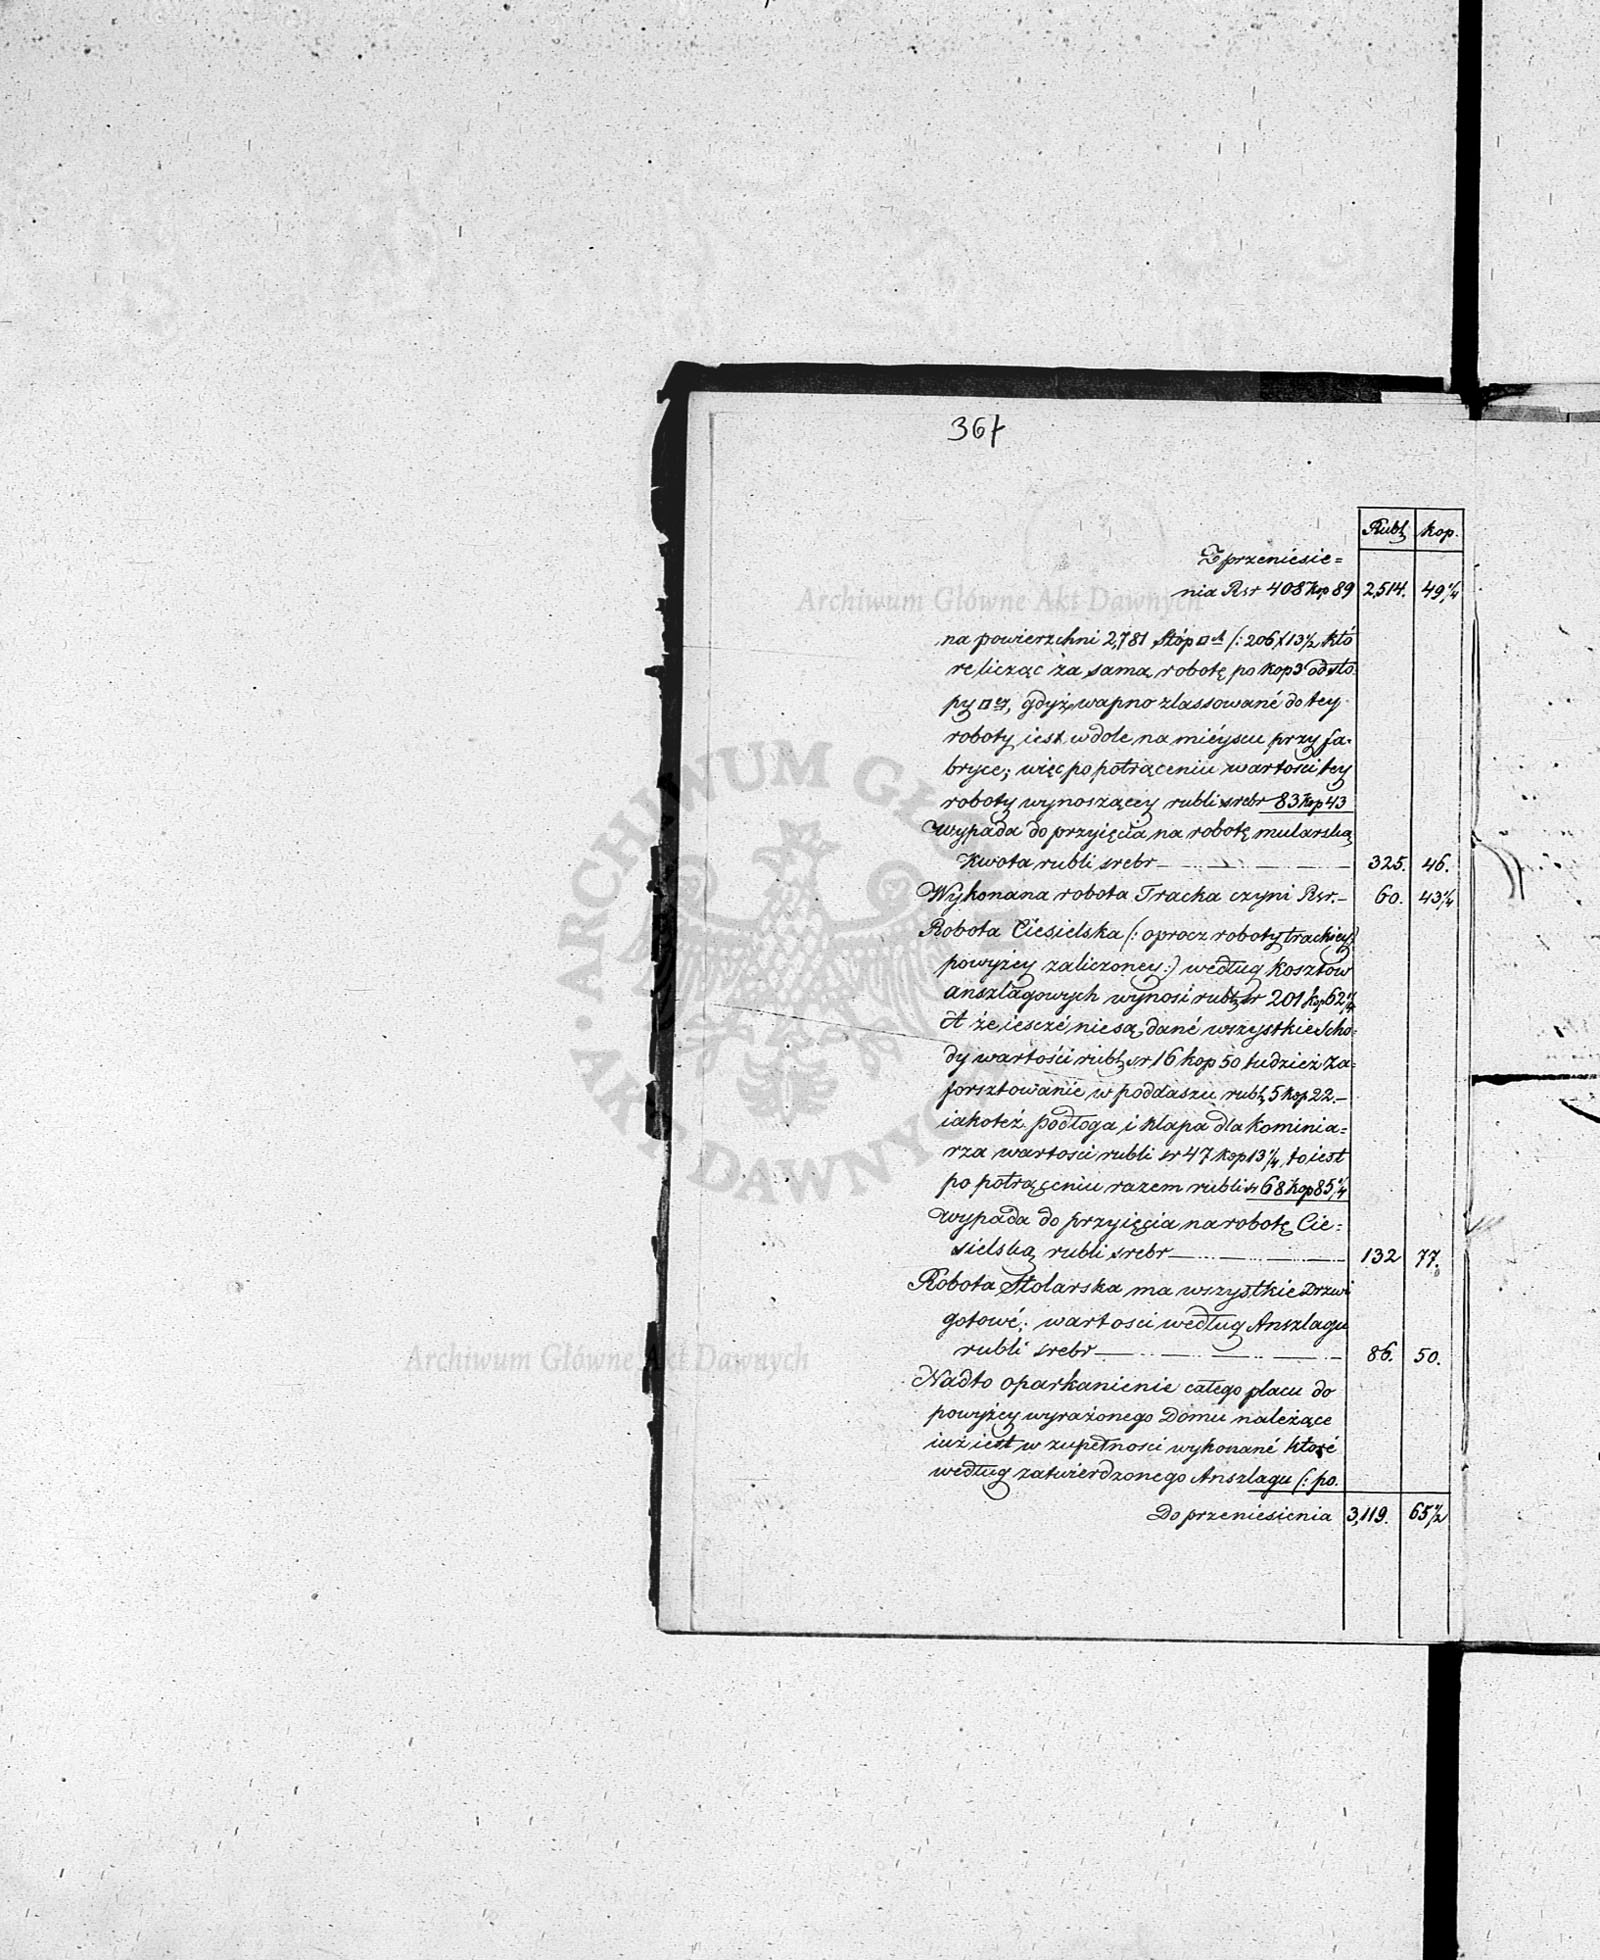 367
Rubl. kop.
Z przeniesie=
nia Rsr 408 kop 89 2,514. 49 1/4
na powierzchni 2,781 Stóp □ch (: 206 × 13 1/2, któ
re licząc za samą robotę po kop 3 od sto=
py □ey, gdyż wapno zlassowané do tey
roboty iest w dole na mieyscu przy fa=
bryce; więc po potrąceniu wartości tey
roboty wynoszącey rubli srebr 83 kop 43
Wypada do przyięcia na robotę mularską
Kwota rubli srebr 325. 46.
Wykonana robota Tracka czyni Rsr. 60. 43 1/4
Robota Ciesielska (: oprocz roboty trackiey
powyżey zaliczoney :) według kosztow
anszlagowych wynosi rubl. sr 201 kop 62 1/4
A że iescze nie są dané wszystkie Scho=
dy wartości rubl. sr 16 kop 50 tudzież za=
forsztowanie w poddaszu rubl. 5 kop 22.
iakoteż podłoga i klapa dla kominia=
rza wartosci rubli sr 47 kop 13 1/4, to iest
po potrąceniu razem rubli sr 68 kop 85 1/4
Wypada do przyięcia na robotę Cie=
sielską rubli srebr 132 77.
Robota Stolarska ma wszystkie Drzwi
gotowé; wartosci według Anszlagu
rubli srebr 86. 50.
Nadto oparkanienie całego placu do
powyżey wyrażonego Domu należące
iuż iest w zupełnosci wykonané które
według zatwierdzonego Anszlagu (: po.
Do przeniesienia 3,119. 65 1/2
Archiwum Główne Akt Dawnych
ARCHIWUM GŁÓWNE
AKT DAWNYCH
Archiwum Główne Akt Dawnych